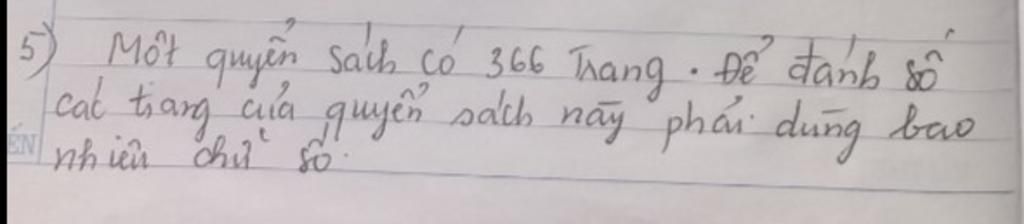 5) Một quyển sách có 366 Trang. Để đánh số
các trang của quyển sách này phải dùng bao
nhiêu chữ số.